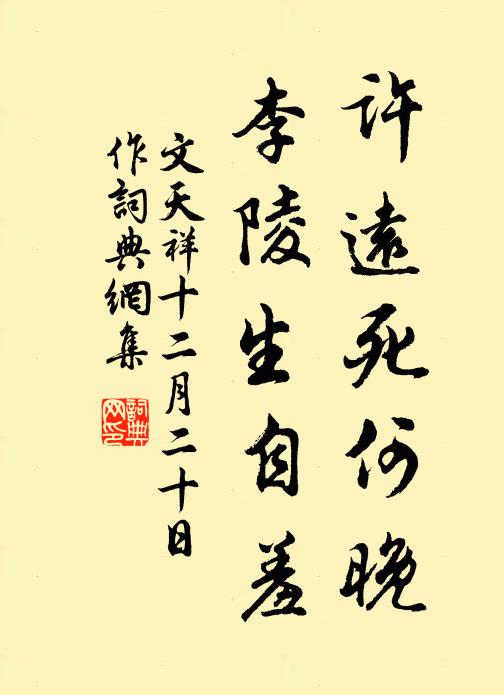 許遠死何晚
李陵生自羞
文天祥十二月二十日
作詞典網集
詞典網印